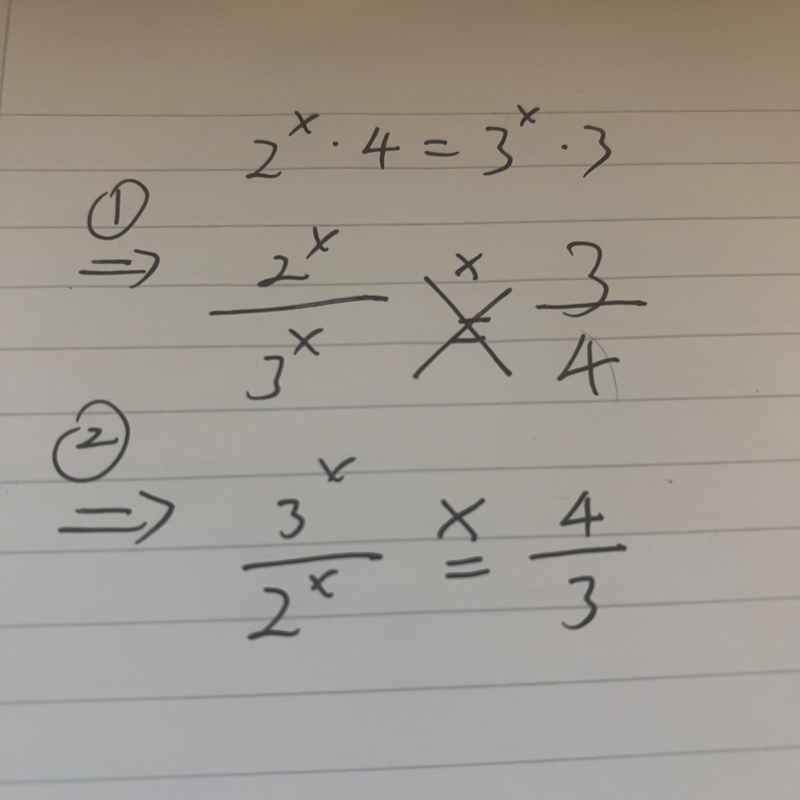 2^x · 4 = 3^x · 3
① ⇒ 2^x / 3^x = × 3 / 4
② ⇒ 3^x / 2^x × = 4 / 3